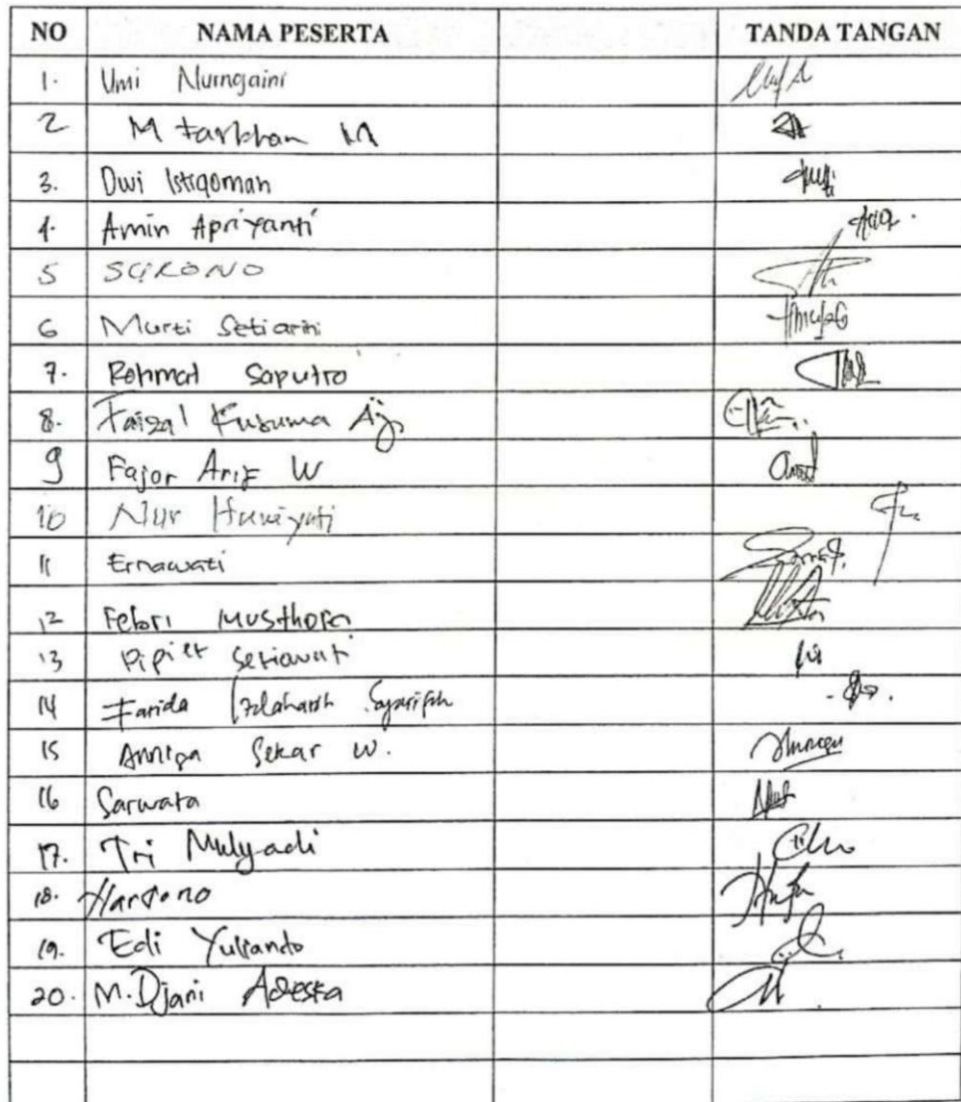 NO NAMA PESERTA TANDA TANGAN
1. Umi Nurngaini
2 M Farkhan M
3. Dwi Istiqomah
4. Amin Apriyanti
5 SURONO
6 Murti Setiarini
7. Rohmat Saputro
8. Faizal Kusuma Aj
9 Fajar Arif W
10 Nur
11 Ernawati
12 Febri Musthofa
13 Pipiet Setiawati
14 Farida
15 Annisa Sekar W.
16 Sarwata
17. Tri Mulyadi
18. Hartono
19. Edi Yulianto
20. M. Djani Adeska